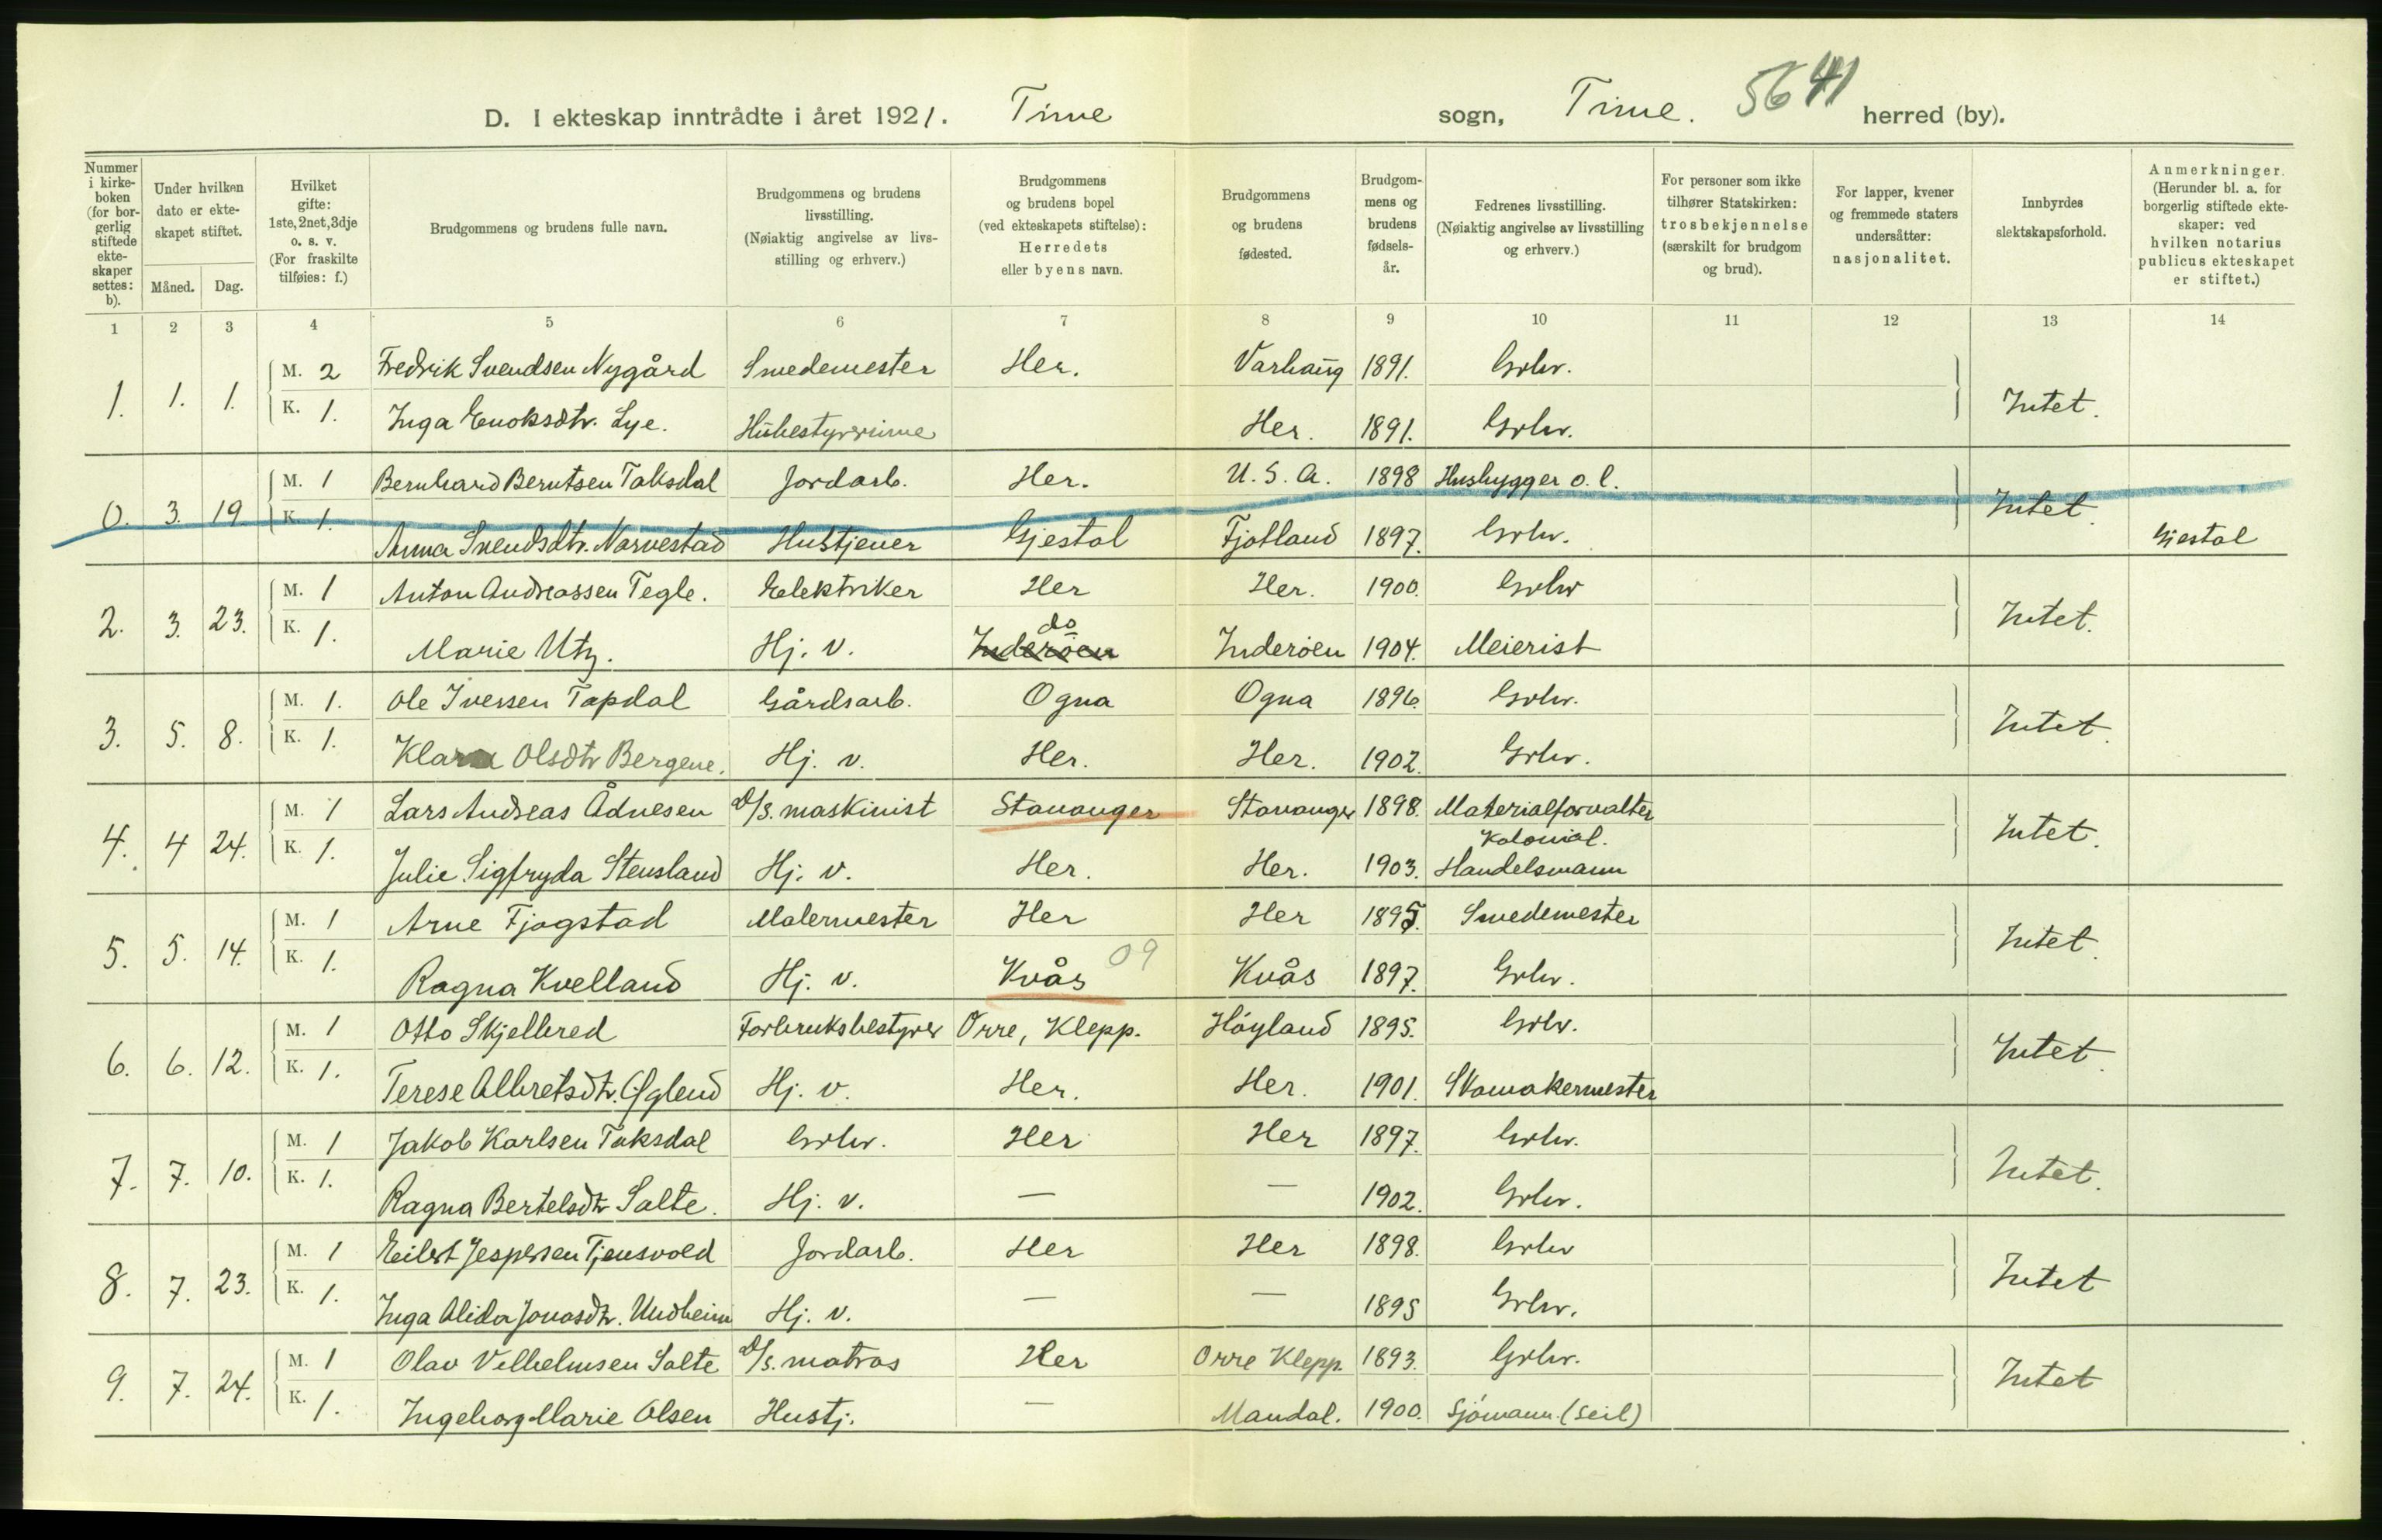 D. I ekteskap inntrådte i året 1921. Time sogn, Time. 5641 herred (by).
Nummer i kirkeboken (for borgerlig stiftede ekteskaper settes: b).
Under hvilken dato er ekteskapet stiftet.
Måned. Dag.
Hvilket gifte: 1ste, 2net, 3dje o. s. v. (For fraskilte tilføies: f.)
Brudgommens og brudens fulle navn.
Brudgommens og brudens livsstilling. (Nøiaktig angivelse av livsstilling og erhverv.)
Brudgommens og brudens bopel (ved ekteskapets stiftelse): Herredets eller byens navn.
Brudgommens og brudens fødested.
Brudgommens og brudens fødselsår.
Fedrenes livsstilling. (Nøiaktig angivelse av livsstilling og erhverv.)
For personer som ikke tilhører Statskirken: trosbekjennelse (særskilt for brudgom og brud).
For lapper, kvener og fremmede staters undersåtter: nasjonalitet.
Innbyrdes slektskapsforhold.
Anmerkninger. (Herunder bl. a. for borgerlig stiftede ekteskaper: ved hvilken notarius publicus ekteskapet er stiftet.)
1 2 3 4 5 6 7 8 9 10 11 12 13 14
1. 1. 1. M. 2 Fredrik Svendsen Nygård Smedemester Her. Varhaug 1891. Grbr. Intet.
K. 1. Inga Enoksdtr. Lye. Husbestyrerinne Her. 1891. Grbr.
0. 3. 19 M. 1 Bernhard Berntsen Taksdal Jordarb. Her. U. S. A. 1898 Husbygger o. l. Intet.
K. 1. Anna Svendsdtr. Norvestad Hustjener Gjestal Fjotland 1897. Grbr. Gjestal
2. 3. 23. M. 1 Anton Andreassen Tegle. Elektriker Her Her. 1900. Grbr Intet.
K. 1. Marie Utz. Hj. v. Inderøen do Inderøen 1904. Meierist
3. 5. 8. M. 1. Ole Iversen Tapdal Gårdsarb. Ogna Ogna 1896. Grbr. Intet.
K. 1. Klara Olsdtr Bergene. Hj. v. Her. Her. 1902. Grbr.
4. 4 24. M. 1 Lars Andreas Ådnesen D/s. maskinist Stavanger Stavanger 1898. Materialforvalter Intet.
K. 1. Julie Sigfryda Stensland Hj. v. Her. Her. 1903. Kolonial. Handelsmann
5. 5. 14. M. 1 Arne Fjogstad Malermester Her Her 1895. Smedemester Intet.
K. 1. Ragna Kvelland Hj. v. Kvås 09 Kvås 1897. Grbr.
6. 6. 12. M. 1 Otto Skjelbred Forbruksbestyrer Orre, Klepp. Høyland 1895. Grbr. Intet.
K. 1. Terese Albretsdtr. Hj. v. Her. Her. 1901. Skomakermester
7. 7. 10. M. 1 Jakob Karlsen Taksdal Grbr. Her Her 1897. Grbr. Intet.
K. 1. Ragna Bertelsdtr Salte. Hj. v. — — 1902. Grbr.
8. 7. 23. M. 1 Eilert Jespersen Tjensvold Jordarb. Her Her 1898. Grbr Intet
K. 1. Inga Alida Jonasdtr. Undheim Hj. v. — — 1895 Grbr.
9. 7. 24. M. 1 Olav Velhelmsen Salte D/s. matros Her Orre Klepp. 1893. Grbr. Intet
K. 1. Ingeborg Marie Olsen Hustj. — Mandal. 1900. Sjømann. (Seil)